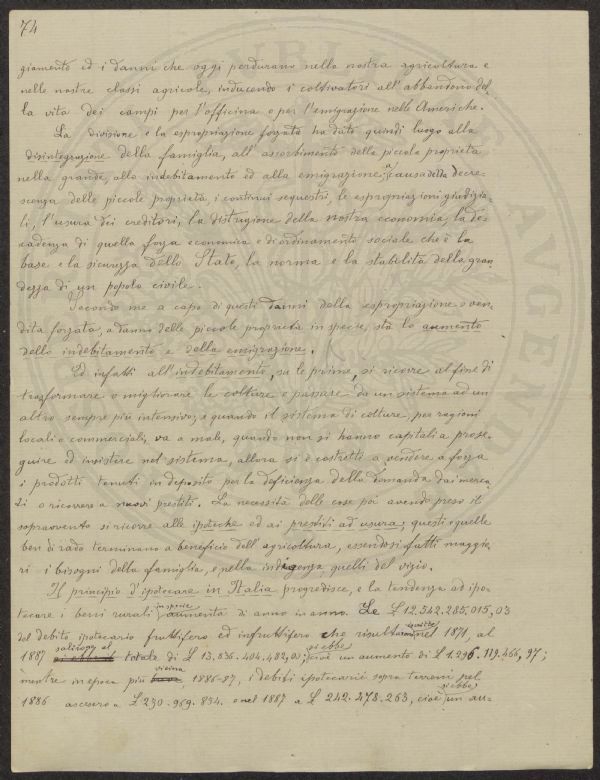 74
giamento ed i danni che oggi perdurano nella nostra agricoltura e
nelle nostre classi agricole, inducendo i coltivatori all'abbandono del
la vita dei campi per l'officina o per l'emigrazione nelle Americhe.
La divisione e la espropriazione forzata ha dato quindi luogo alla
disintegrazione della famiglia, all'assorbimento della piccola proprietà
nella grande, allo indebitamento ed alla emigrazione; a causa della decre-
scenza delle piccole proprietà, i continui sequestri, le espropriazioni giudizia-
li, l'usura dei creditori, la distruzione della nostra economia, la de-
cadenza di quella forza economica e di ordinamento sociale che è la
base e la sicurezza dello Stato, la norma e la stabilità della gran
dezza di un popolo civile.
Secondo me a capo di questi danni della espropriazione o ven-
dita forzata, a danno delle piccole proprietà in specie, sta lo aumento
dello indebitamento e della emigrazione.
Ed infatti all'indebitamento, su le prime, si ricorre al fine di
trasformare o migliorare le colture o passare da un sistema ad un
altro sempre più intensivo; e quando il sistema di colture, per ragioni
locali o commerciali, va a male, quando non si hanno capitali a prose-
guire ed insistere nel sistema, allora si è costretti a vendere a forza
i prodotti tenuti in deposito per la deficienza della domanda dai merca
ti o ricorrere a nuovi prestiti. La necessità delle cose poi avendo preso il
sopravvento si ricorre alle ipoteche ed ai prestiti ad usura; questi e quelle
ben di rado terminano a beneficio dell'agricoltura, essendosi fatti maggio
ri i bisogni della famiglia, e nella indigenza quelli del vizio.
Il principio d'ipotecare in Italia progredisce, e la tendenza ad ipo-
tecare i beni rurali in specie aumenta di anno in anno. Le £ 12.542.285.015,03
del debito ipotecario fruttifero ed infruttifero che risultavano nel 1871, al
1887 totale di £ 13.838.404.482,00; si ebbe cioè un aumento di £ 1.296.119.466,97;
mentre in epoca più vicina, 1886-87, i debiti ipotecarii sopra terreni nel
1886 ascesero a £ 230.969.834. e nel 1887 a £ 242.478.263, cioè si ebbe un au-